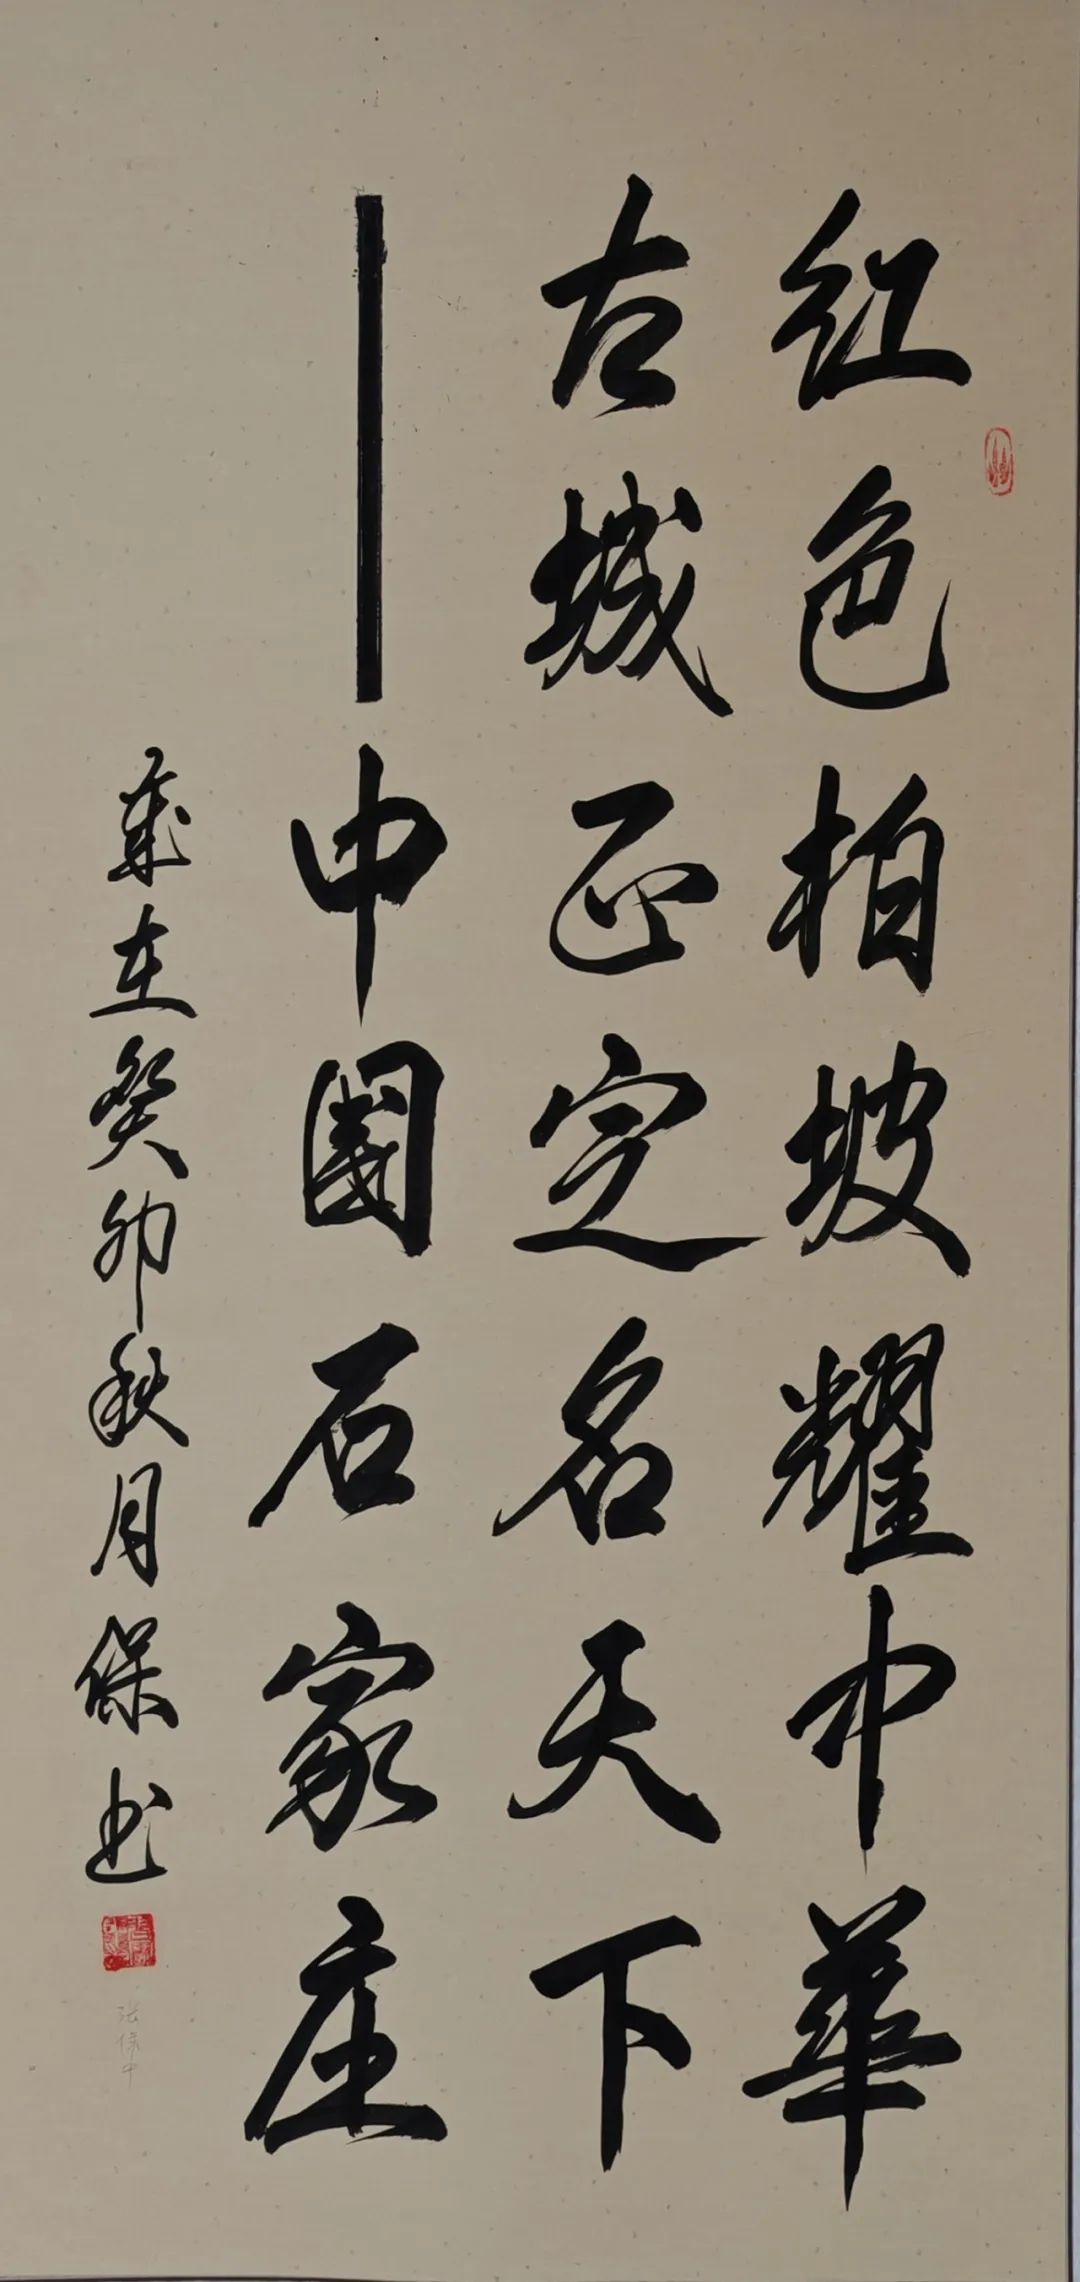 红色柏坡耀中华
古城正定名天下
——中國石家庄
歲在癸卯秋月保书
张保中